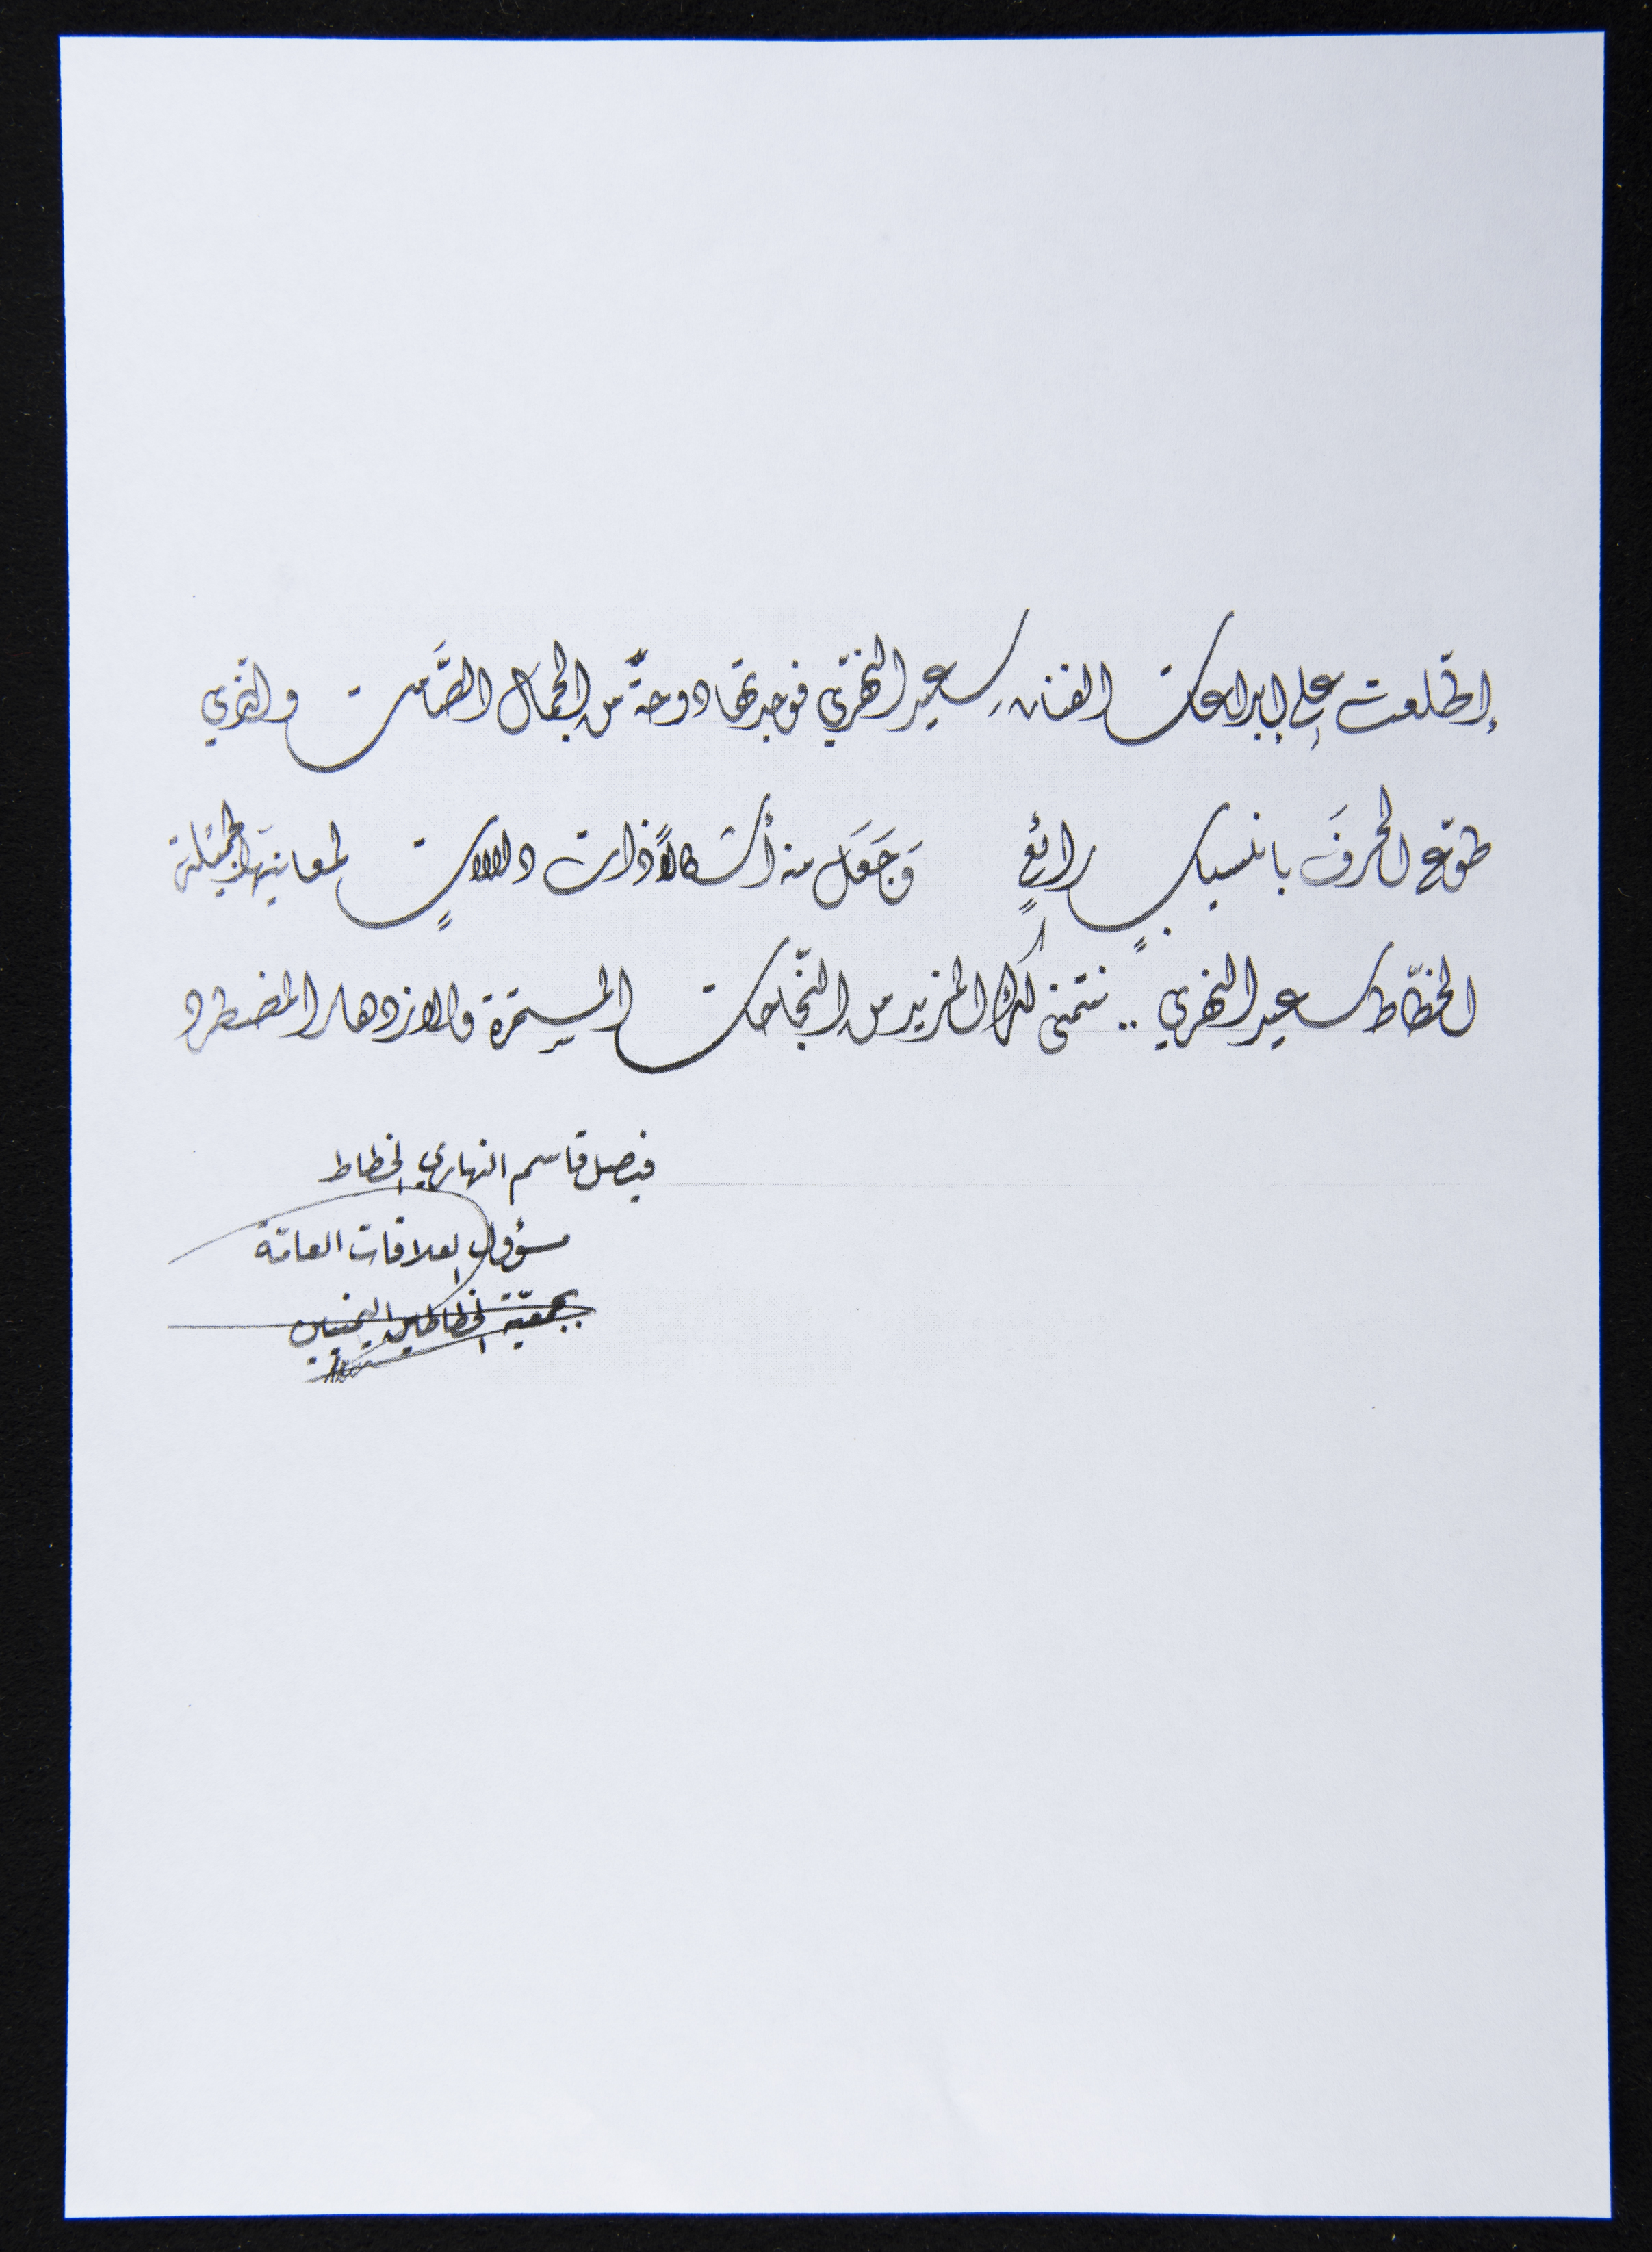 إطّلعت على إبداعات الفنان سعيد النهري فوجدتها دوحةً من الجمال الصَّامت والذي
طوّع الحرفَ بانسيابٍ رائعٍ وَجَعَل منه أشكالاً ذات دلالاتٍ لمعانيها الجميلة
الخطّاط سعيد النهري .. نتمنى لك المزيد من النجّاحات المستمرّة والازدهار المضطرد
فيصل قاسم النهاري الخطاط
مسؤول العلاقات العامّة
بجمعيّة الخطاطين اليمنيين